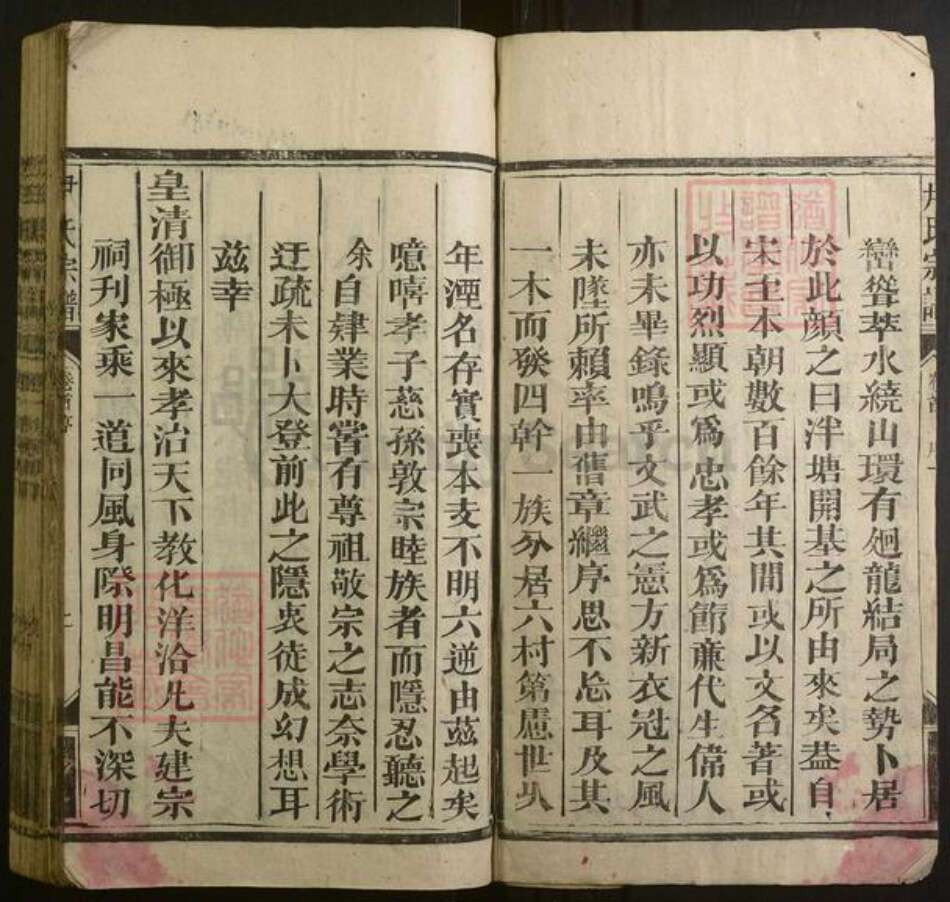 巒聳萃水繞山環有廻龍結局之勢卜居
於此顔之曰泮塘開基之所由來矣葢自
宋至本朝數百餘年其間或以文名著或
以功烈顯或爲忠孝或爲節亷代生偉人
亦未畢錄鳴乎文武之憲方新衣冠之風
未墜所賴率由舊章繼序思不忘耳及其
一木而發四幹一族分居六村第慮世
年湮名存實喪本支不明六逆由茲起矣
噫嘻孝子慈孫敦宗睦族者而隱忍聽之
余自肄業時嘗有尊祖敬宗之志奈學術
迂疏未卜大登前此之隱衷徒成幻想耳
茲幸
皇清御極以來孝治天下教化洋洽凡夫建宗
祠刋家乘一道同風身際明昌能不深切
氏宗譜
卷首